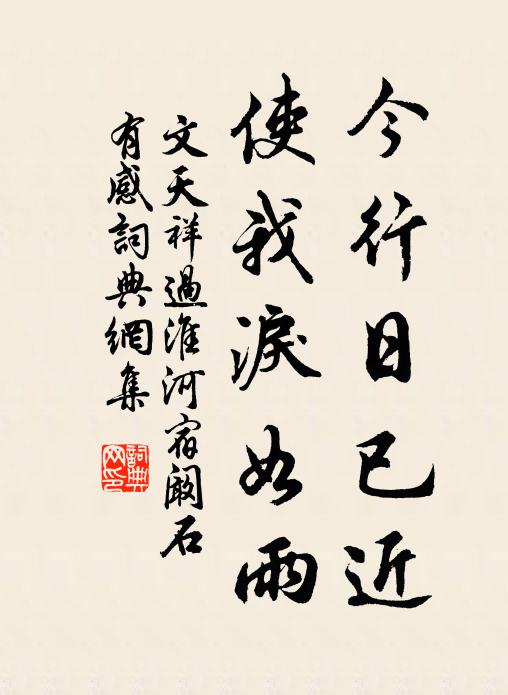 今行日已近
使我淚如雨
文天祥過淮河宿闞石
有感詞典網集
詞典
网印